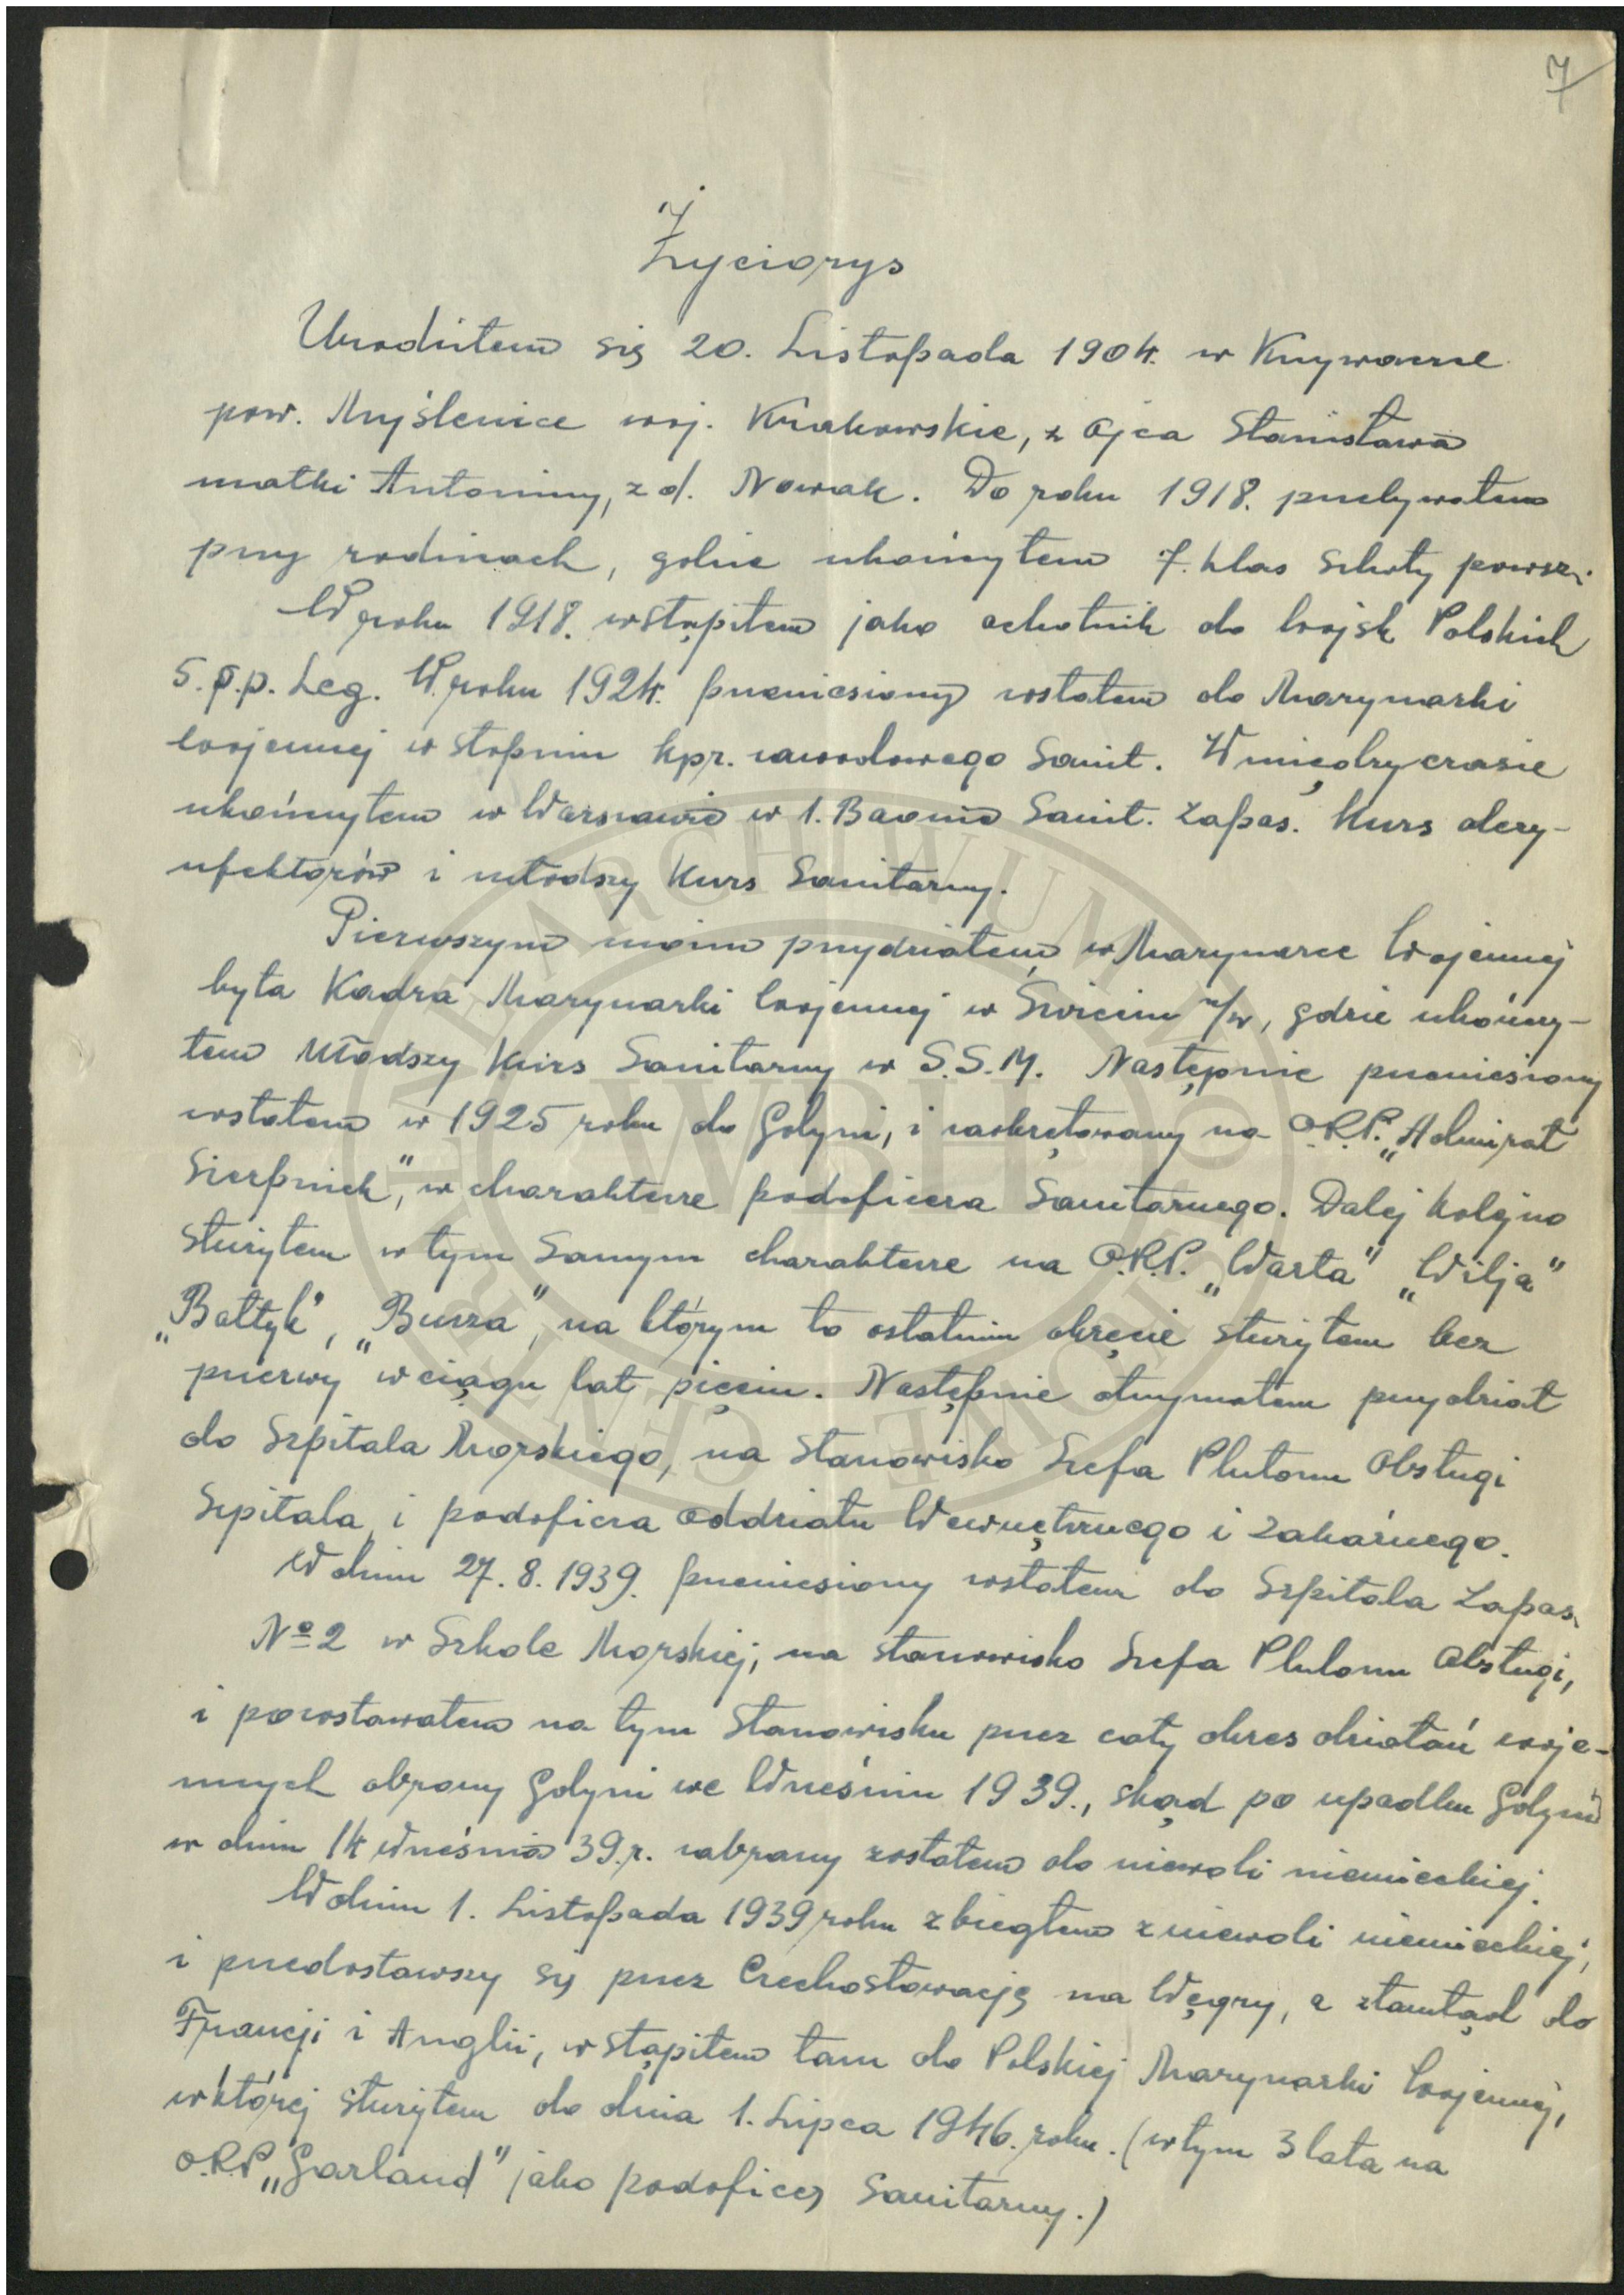 7
Życiorys
Urodziłem się 20. Listopada 1904. w Krzywaczce
pow. Myślenice woj. Krakowskie, z Ojca Stanisława
matki Antoniny, z d. Nowak. Do roku 1918. przebywałem
przy rodzinach, gdzie ukończyłem 7. klas Szkoły powsz.
W roku 1918. wstąpiłem jako ochotnik do Wojsk Polskich
5. p.p. Leg. W roku 1924. przeniesiony zostałem do Marynarki
Wojennej w stopniu kpr. zawodowego Sanit. W międzyczasie
ukończyłem w Warszawie w 1. Baonie Sanit. Zapas. Kurs dezy-
nfektorów i młodszy Kurs Sanitarny.
Pierwszym moim przydziałem w Marynarce Wojennej
była Kadra Marynarki Wojennej w Świeciu n/w, gdzie ukończy-
łem Młodszy Kurs Sanitarny w S.S.M. Następnie przeniesiony
zostałem w 1925 roku do Gdyni, i zaokrętowany na O.R.P. „Admirał
Sierpinek", w charakterze podoficera Sanitarnego. Dalej kolejno
Służyłem w tym Samym charakterze na O.R.P. „Warta" „Wilja"
„Bałtyk", „Burza", na którym to ostatnim okręcie służyłem bez
przerwy w ciągu lat pięciu. Następnie otrzymałem przydział
do Szpitala Morskiego, na Stanowisko Szefa Plutonu Obsługi
Szpitala i podoficera Oddziału Wewnętrznego i Zakaźnego.
W dniu 27.8.1939. przeniesiony zostałem do Szpitala Zapas.
№ 2 w Szkole Morskiej, na stanowisko Szefa Plutonu Obsługi,
i pozostawałem na tym Stanowisku przez cały okres działań woje-
nnych obrony Gdyni we Wrześniu 1939., skąd po upadku Gdyni
w dniu 14 Września 39.r. zabrany zostałem do niewoli niemieckiej.
W dniu 1. Listopada 1939 roku zbiegłem z niewoli niemieckiej,
i przedostawszy się przez Czechosłowację na Węgry, a ztamtąd do
Francji i Anglii, wstąpiłem tam do Polskiej Marynarki Wojennej,
w której służyłem do dnia 1. Lipca 1946. roku. (w tym 3 lata na
O.R.P. „Garland" jako podoficer Sanitarny.)
ARCHIWUM
WBH